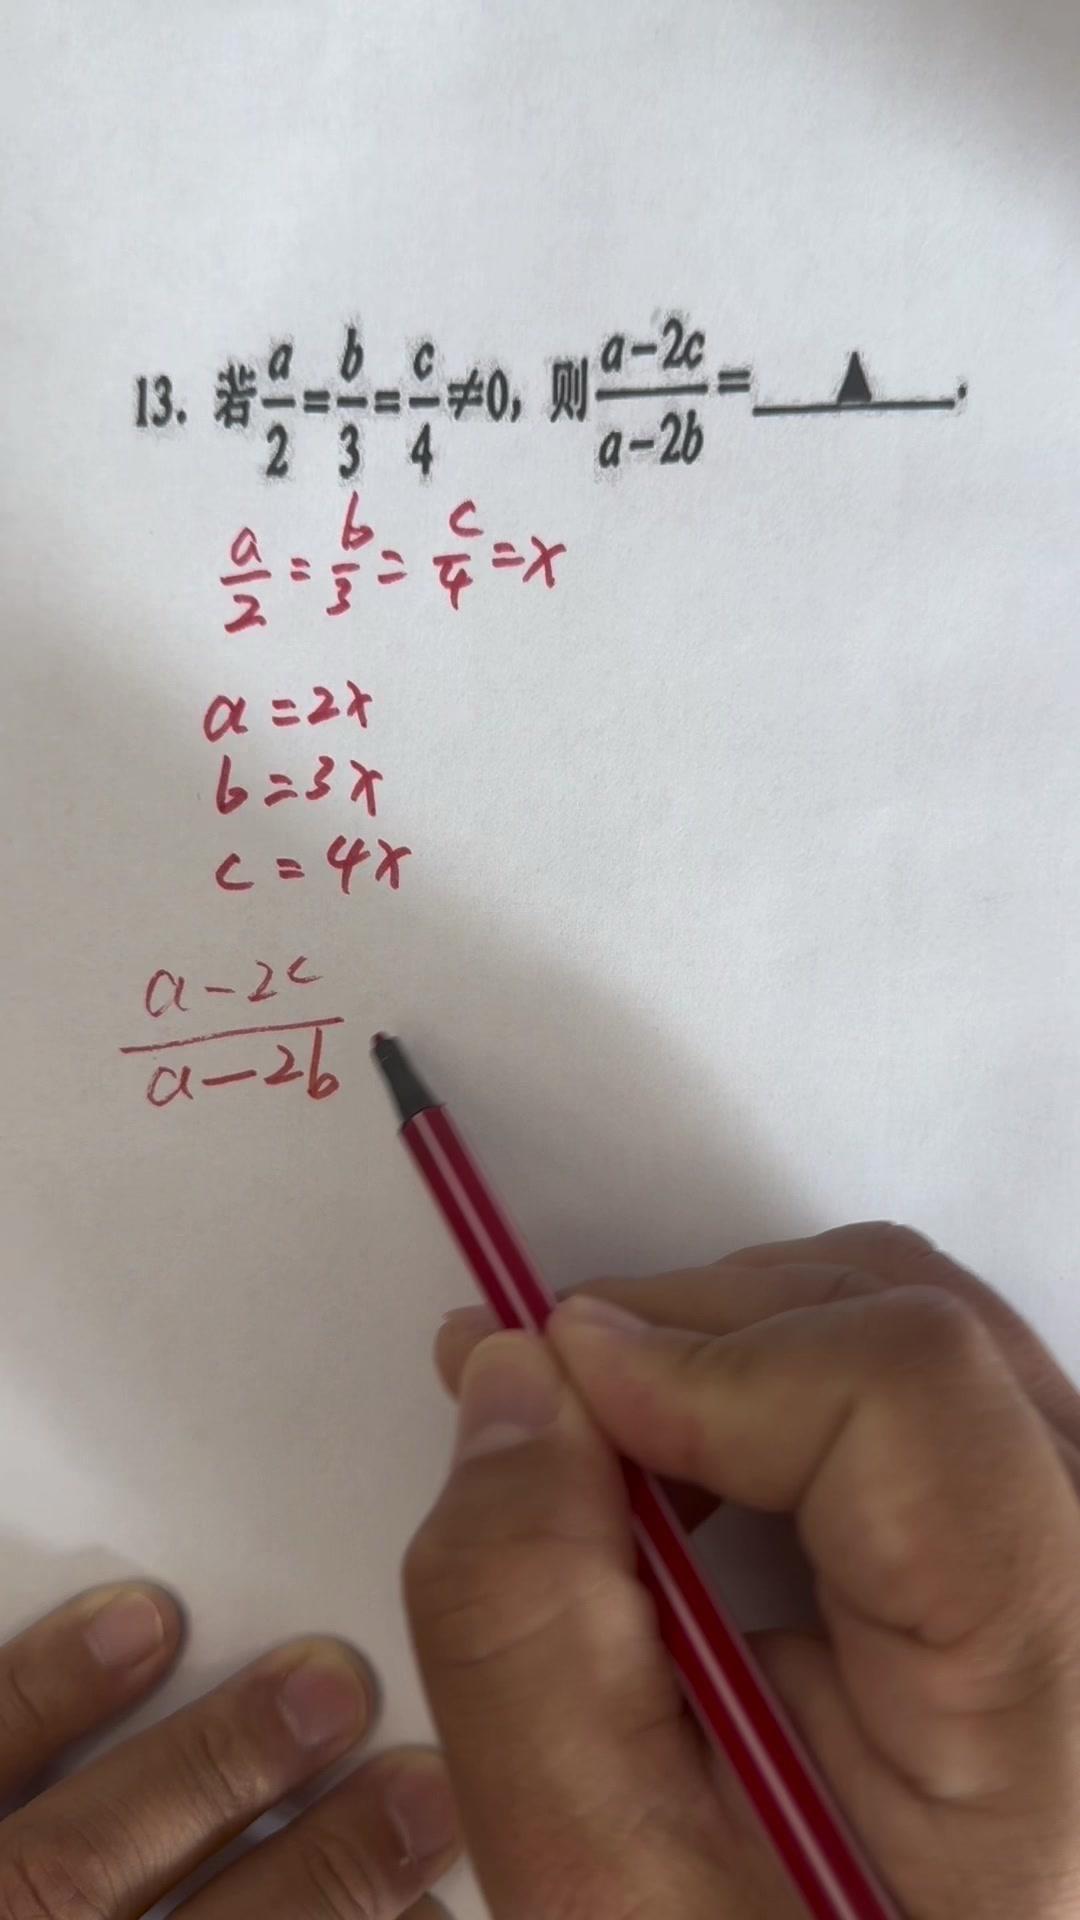 13. 若a/2=b/3=c/4≠0, 则(a-2c)/(a-2b)=___▲___.
a/2=b/3=c/4=x
a=2x
b=3x
c=4x
(a-2c)/(a-2b)